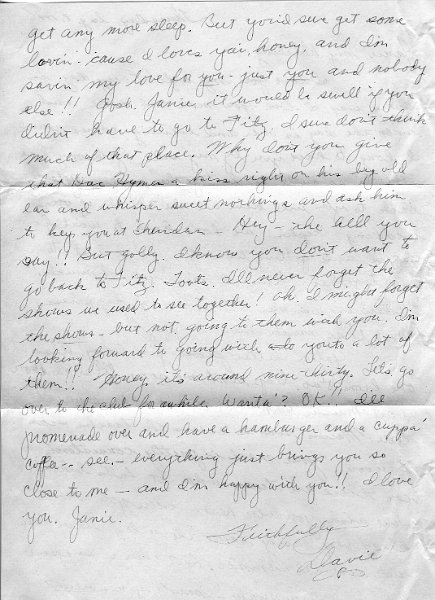 get any more sleep. But you'd sure get some
lovin' cause I loves you, honey, and I'm
savin' my love for you - just you and nobody
else!! Gosh, Janie, it would be swell if you
didn't have to go to Fitz. I sure don't think
much of that place. Why don't you give
that a kiss right on his big old
ear and whisper sweet nothings and ask him
to keep you at Sheridan - Hey - the hell you
say!! But golly, I know you don't want to
go back to Fitz. Toots, I'll never forget the
shows we used to see together! Oh, I might forget
the shows - but not going to them with you. I'm
looking forward to going with you to a lot of
them!! Honey, it's around nine thirty. Let's go
over to the club for awhile. Wanta'? OK!! I'll
promenade over and have a hamburger and a cuppa'
coffa -- see, - everything just brings you so
close to me - and I'm happy with you!! I love
you, Janie.
Faithfully
Davie